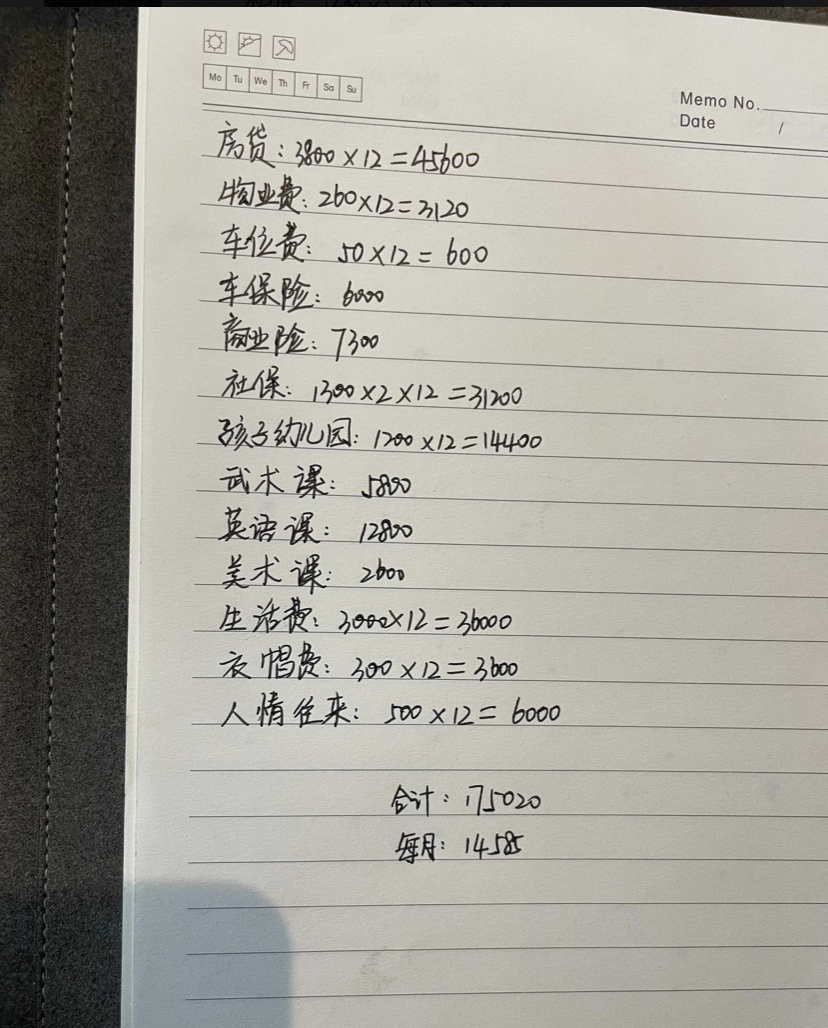 Mo Tu We Th Fr Sa Su
Memo No.
Date /
房贷：3800×12=45600
物业费：260×12=3120
车位费：50×12=600
车保险：6000
商业险：7300
社保：1300×2×12=31200
孩子幼儿园：1200×12=14400
武术课：5800
英语课：12800
美术课：2600
生活费：3000×12=36000
衣帽费：300×12=3600
人情往来：500×12=6000
合计：175020
每月：14585